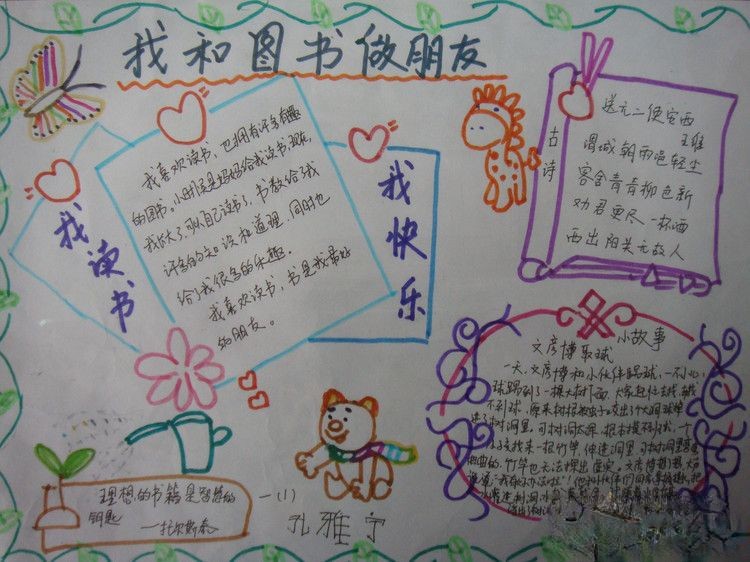 我和图书做朋友
我喜欢读书，也拥有许多有趣
的图书。小时候是妈妈给我读书，现在
我长大了，可以自己读书了，书教给了我
许多的知识和道理，同时也
给了我很多的乐趣。
我喜欢读书，书是我最好
的朋友。
我读书
我快乐
古诗
送元二使安西
王维
渭城朝雨浥轻尘
客舍青青柳色新
劝君更尽一杯酒
西出阳关无故人
小故事
文彦博取球
一天，文彦博和小伙伴踢球，一不小心，
球踢到了一棵大树下面，
不到球，原来树根被虫子蛀出了个大洞球
进了树洞里，可树洞太深，
找来一根竹竿，伸进洞里，可树洞里
曲的，竹竿也无法探出
理想的书籍是智慧的
钥匙
—托尔斯泰
一（1）
孔雅宁